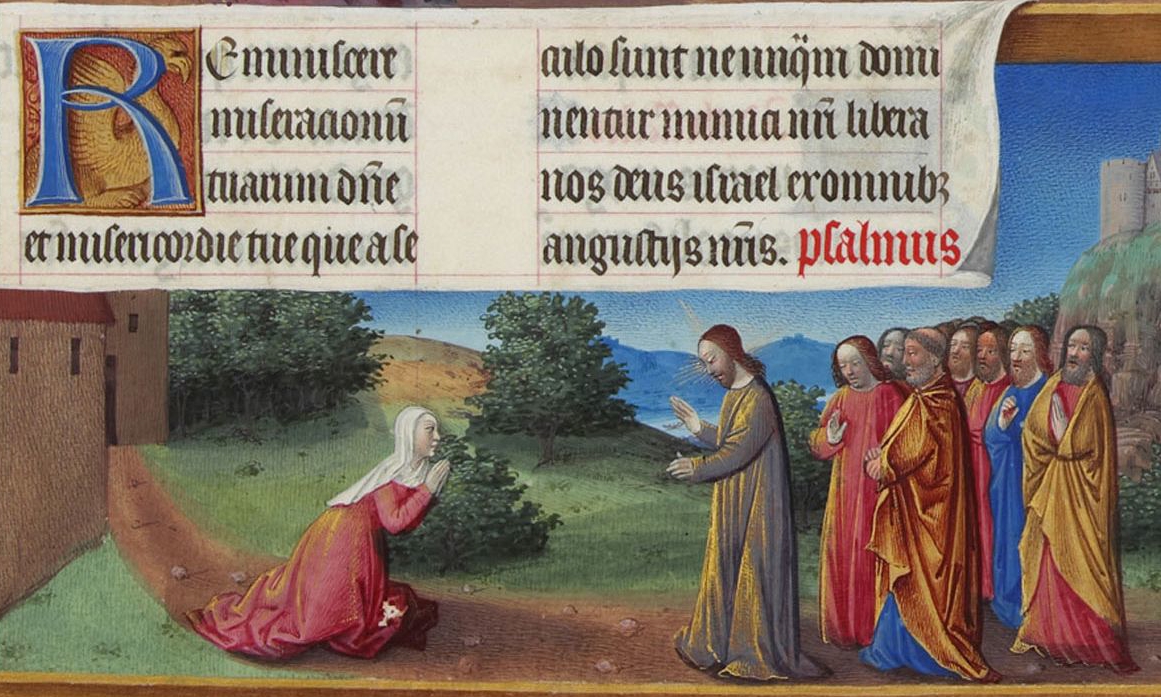 REminiscere
miseracionū
tuarum dñe
et misericordie tue que a se
culo sunt ne unq̄m domi
nentur inimici nr̄i libera
nos deus israel ex omnibꝫ
angustijs nr̄is. psalmus